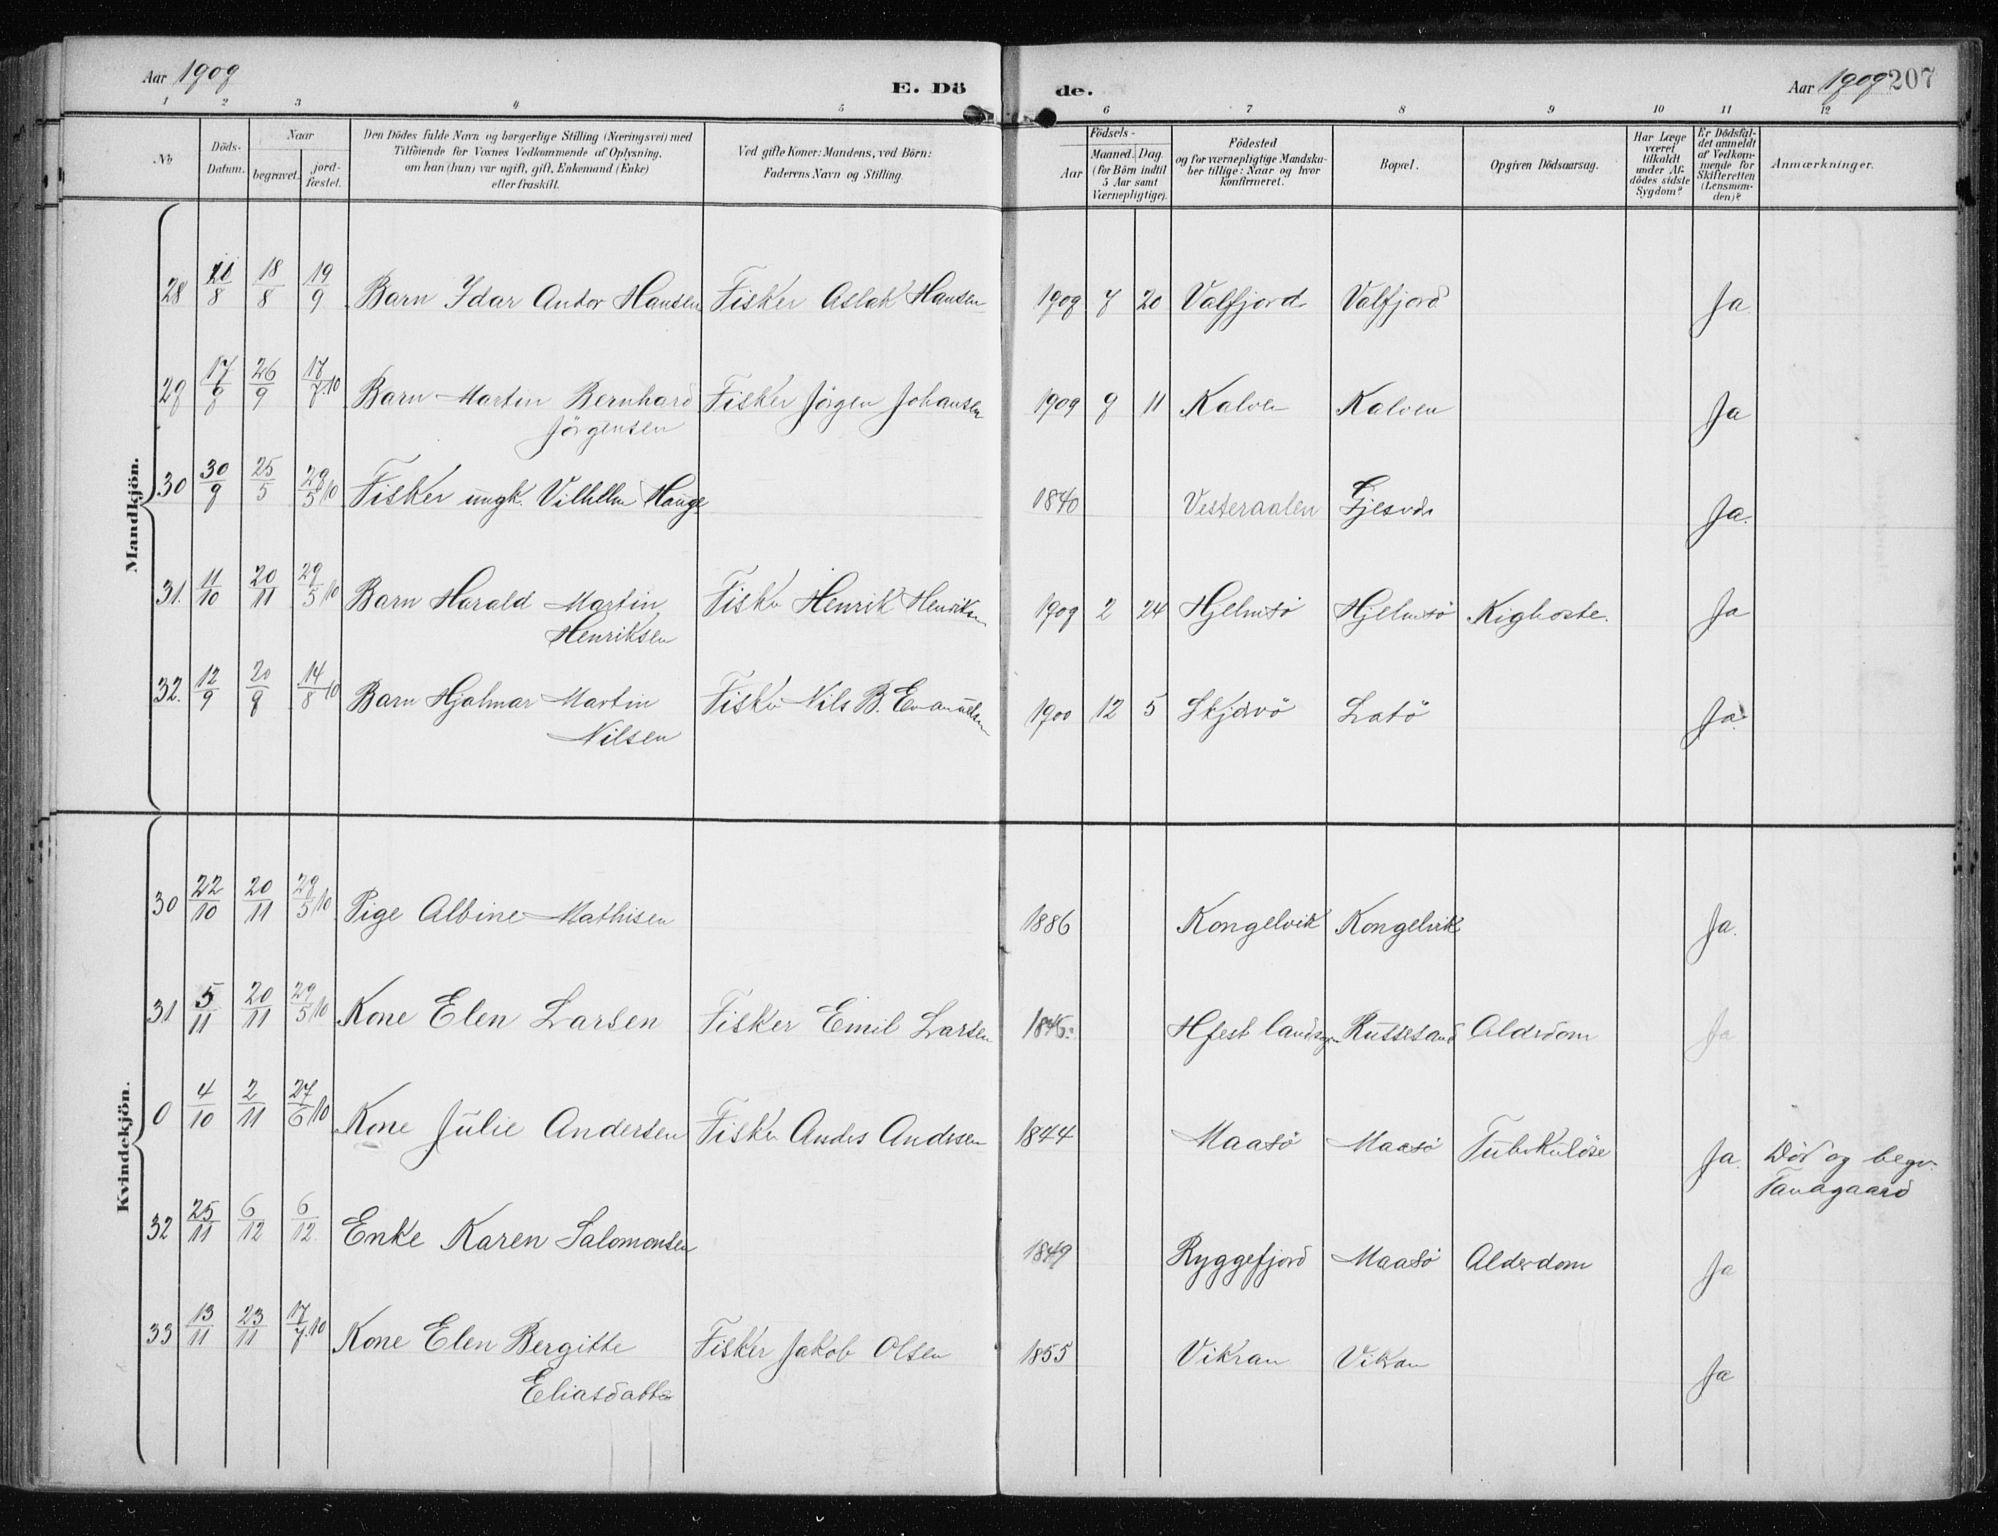 Aar 1909 E. Dö de. Aar 1909 207
1 2 3 4 5 6 7 8 9 10 11 12
No
Döds-
Datum.
Naar
begravet.
jord-
fæstet.
Den Dödes fulde Navn og borgerlige Stilling (Næringsvei) med
Tilföiende for Voxnes Vedkommende af Oplysning,
om han (hun) var ugift, gift, Enkemand (Enke)
eller fraskilt.
Ved gifte Koner: Mandens, ved Börn:
Faderens Navn og Stilling.
Födsels-
Aar
Maaned. Dag
(for Börn indtil
5 Aar samt
Værnepligtige).
Födested
og for værnepligtige Mandska-
ber tillige: Naar og hvor
konfirmeret.
Bopæl.
Opgiven Dödsaarsag.
Har Læge
været
tilkaldt
under Af-
dödes sidste
Sygdom?
Er Dödsfal-
det anmeldt
af Vedkom-
mende for
Skifteretten
(Lensman-
den)?
Anmærkninger.
Mandkjön.
28 /8 18/8 19/9 Barn Idar Andor Hansen Fisker Aslak Hansen 1909 7 20 Valfjord Valfjord Ja
29 17/9 26/9 17/7.10 Barn Martin Bernhard Fisker Jörgen Johansen 1909 9 11 Kalven Kalven Ja
Jörgensen
30 30/9 25/5 29/5 10 Fisker ungk. Vilhelm Hauge 1840 Vesteraalen Gjesvær Ja.
31. 11/10 20/11 29/5 10 Barn Harald Martin Fisker Henrik Henriksen 1909 2 24 Hjelmsö Hjelmsö Kighoste. Ja
Henriksen
32. 12/9 20/9 14/8 10 Barn Hjalmar Martin Fisker Nils B. Emanuelsen 1900 12 5 Skjervö Latö Ja.
Nilsen
Kvindekjön.
30 22/10 20/11 29/5 10 Pige Albine Mathisen 1886 Kongelvik Kongelvik Ja.
31 5/11 20/11 29/5 10 Kone Elen Larsen Fisker Emil Larsen 1846. Hfest landsogn Russesand Alderdom Ja
0 4/10 2/11 27/6 10 Kone Julie Andersen Fisker Anders Andersen 1844 Maasö Maasö Tuberkulöse Ja. Död og begr.
Tanagaard
32 25/11 6/12 6/12. Enke Karen Salomonsen 1849 Ryggefjord Maasö Alderdom Ja
33 13/11 23/11 17/7.10 Kone Elen Bergitte Fisker Jakob Olsen 1855 Vikran Vikran Ja
Eliasdatter